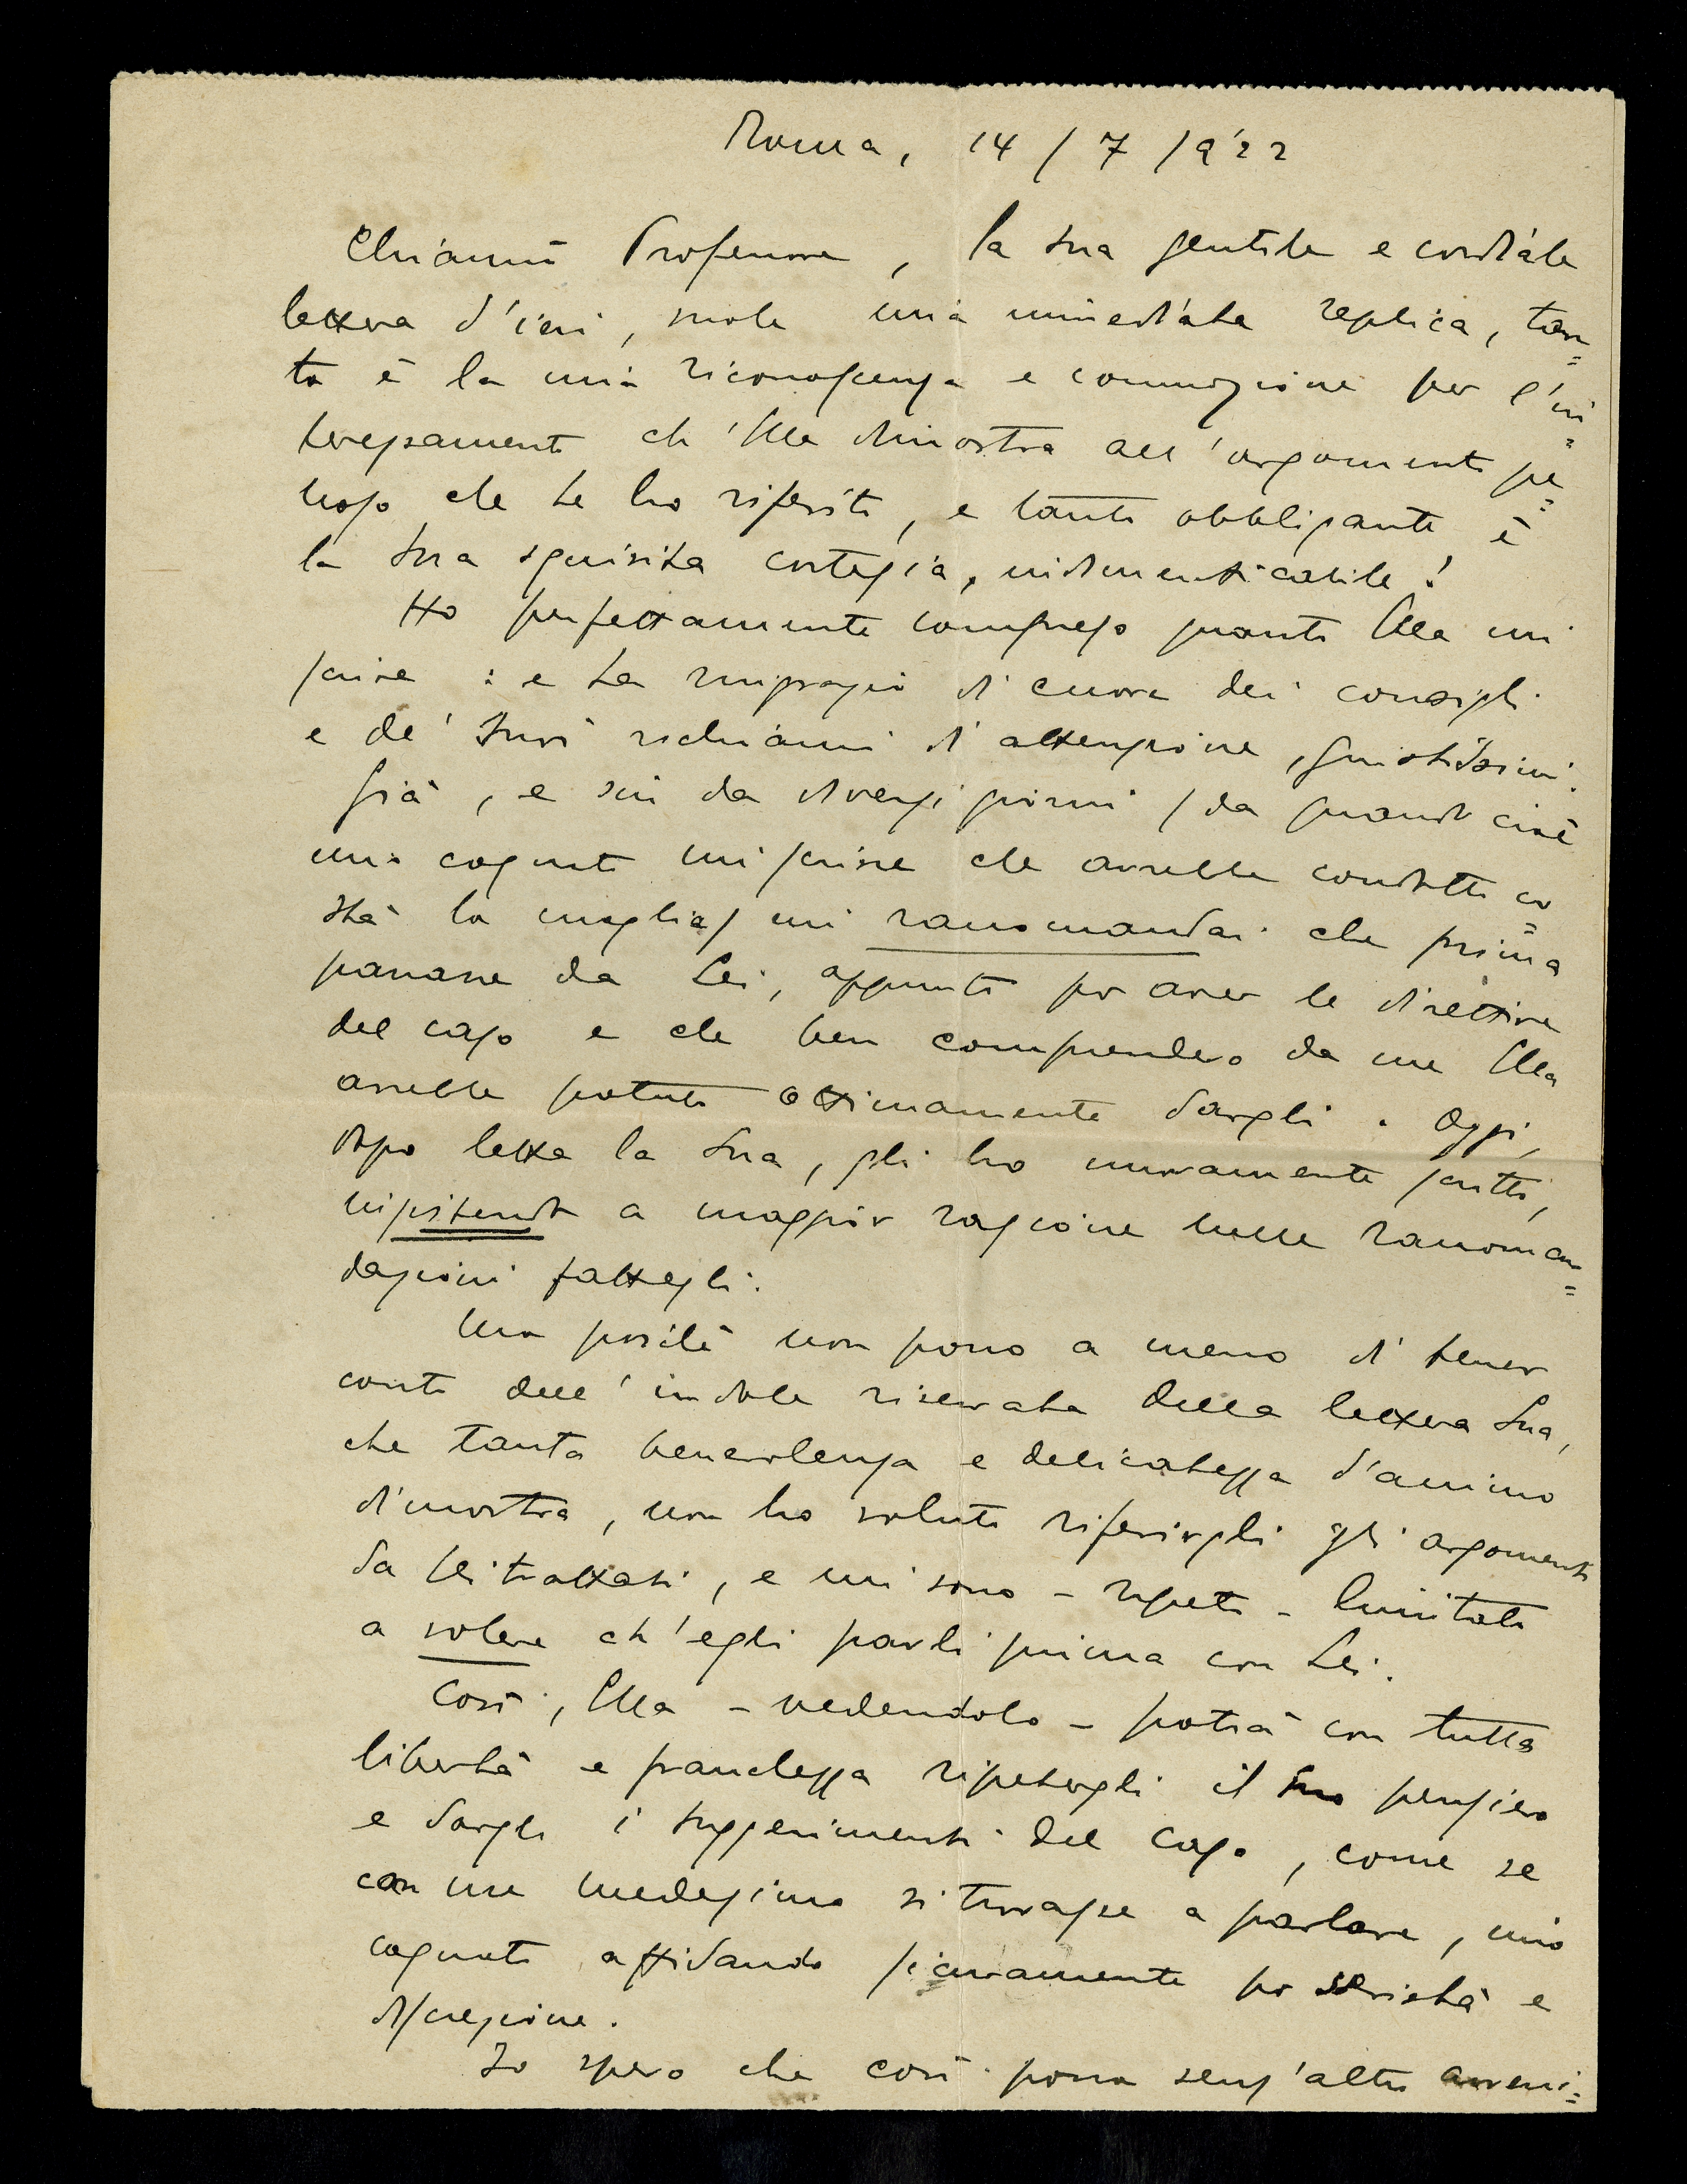 Roma, 14/7/922
Chiar.mo Professore, la Sua gentile e cordiale
lettera d'ieri, vuole una immediata replica, tan=
to è la mia riconoscenza e commozione per l'in=
teressamento ch'Ella dimostra all'argomento pe=
noso che Le ho riferito, e tanto obbligante è
la Sua squisita cortesia, indimenticabile!
Ho perfettamente compreso quanto Ella mi
scrive: e La ringrazio di cuore dei consigli
e de' Suoi richiami d'attenzione, giustissimi.
Già, e sin da diversi giorni (da quando cioè
mio cognato mi scrisse che avrebbe condotto co=
stà la moglie) mi raccomandai che prima
passasse da Lei, appunto per aver le direttive
del caso e che ben comprendevo da me Ella
avrebbe potuto ottimamente dargli. Oggi,
dopo letta la Sua, gli ho nuovamente scritto,
insistendo a maggior ragione nelle raccoman=
dazioni fattegli.
Ma poiché non posso a meno di tener
conto dell'indole riservata della lettera Sua,
che tanta benevolenza e delicatezza d'animo
dimostra, non ho voluto riferirgli gli argomenti
da Lei trattati, e mi sono - ripeto - limitato
a volere ch'egli parli prima con Lei.
Così, Ella - vedendolo - potrà con tutta
libertà e franchezza ripetergli il Suo pensiero
e dargli i suggerimenti del caso, come se
con me medesimo si trovasse a parlare, mio
cognato affidando sicuramente per serietà e
discrezione.
Io spero che così possa senz'altro avveni=